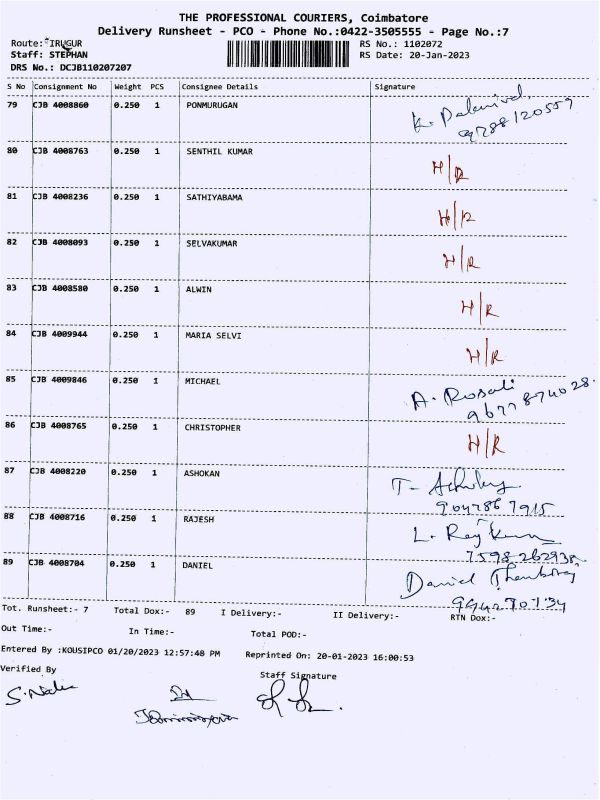 THE PROFESSIONAL COURIERS, Coimbatore
Delivery Runsheet - PCO - Phone No.:0422-3505555 - Page No.:7
Route: IRUGUR
RS No.: 1102072
Staff: STEPHAN
RS Date: 20-Jan-2023
DRS No.: DCJB110207207
S No Consignment No Weight PCS Consignee Details Signature
79 CJB 4008860 0.250 1 PONMURUGAN K. Palanivel,
9788120559
80 CJB 4008763 0.250 1 SENTHIL KUMAR H/R
81 CJB 4008236 0.250 1 SATHIYABAMA H/R
82 CJB 4008093 0.250 1 SELVAKUMAR H/R
83 CJB 4008580 0.250 1 ALWIN H/R
84 CJB 4009944 0.250 1 MARIA SELVI H/R
85 CJB 4009846 0.250 1 MICHAEL A. Rosali
9677874028.
86 CJB 4008765 0.250 1 CHRISTOPHER H/R
87 CJB 4008220 0.250 1 ASHOKAN T-
9047867915
88 CJB 4008716 0.250 1 RAJESH L.
7598262938
89 CJB 4008704 0.250 1 DANIEL Daniel
Tot. Runsheet:- 7 Total Dox:- 89 I Delivery:- II Delivery:- RTN Dox:-
Out Time:- In Time:- Total POD:-
Entered By :KOUSIPCO 01/20/2023 12:57:48 PM Reprinted On: 20-01-2023 16:00:53
Verified By Staff Signature